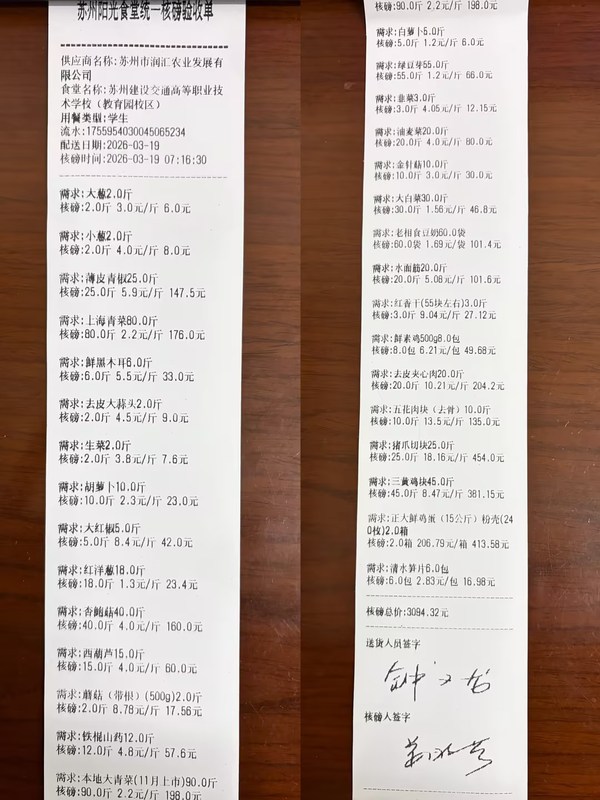 苏州阳光食堂统一核磅验收单
供应商名称:苏州市润汇农业发展有
限公司
食堂名称:苏州建设交通高等职业技
术学校（教育园校区）
用餐类型:学生
流水:1755954030045065234
配送日期:2026-03-19
核磅时间:2026-03-19 07:16:30
需求:大葱2.0斤
核磅:2.0斤 3.0元/斤 6.0元
需求:小葱2.0斤
核磅:2.0斤 4.0元/斤 8.0元
需求:薄皮青椒25.0斤
核磅:25.0斤 5.9元/斤 147.5元
需求:上海青菜80.0斤
核磅:80.0斤 2.2元/斤 176.0元
需求:鲜黑木耳6.0斤
核磅:6.0斤 5.5元/斤 33.0元
需求:去皮大蒜头2.0斤
核磅:2.0斤 4.5元/斤 9.0元
需求:生菜2.0斤
核磅:2.0斤 3.8元/斤 7.6元
需求:胡萝卜10.0斤
核磅:10.0斤 2.3元/斤 23.0元
需求:大红椒5.0斤
核磅:5.0斤 8.4元/斤 42.0元
需求:红洋葱18.0斤
核磅:18.0斤 1.3元/斤 23.4元
需求:杏鲍菇40.0斤
核磅:40.0斤 4.0元/斤 160.0元
需求:西葫芦15.0斤
核磅:15.0斤 4.0元/斤 60.0元
需求:蘑菇（带根）(500g)2.0斤
核磅:2.0斤 8.78元/斤 17.56元
需求:铁棍山药12.0斤
核磅:12.0斤 4.8元/斤 57.6元
需求:本地大青菜(11月上市)90.0斤
核磅:90.0斤 2.2元/斤 198.0元
核磅:90.0斤 2.2元/斤 198.0元
需求:白萝卜5.0斤
核磅:5.0斤 1.2元/斤 6.0元
需求:绿豆芽55.0斤
核磅:55.0斤 1.2元/斤 66.0元
需求:韭菜3.0斤
核磅:3.0斤 4.05元/斤 12.15元
需求:油麦菜20.0斤
核磅:20.0斤 4.0元/斤 80.0元
需求:金针菇10.0斤
核磅:10.0斤 3.0元/斤 30.0元
需求:大白菜30.0斤
核磅:30.0斤 1.56元/斤 46.8元
需求:老相食豆奶60.0袋
核磅:60.0袋 1.69元/袋 101.4元
需求:水面筋20.0斤
核磅:20.0斤 5.08元/斤 101.6元
需求:红香干(55块左右)3.0斤
核磅:3.0斤 9.04元/斤 27.12元
需求:鲜素鸡500g8.0包
核磅:8.0包 6.21元/包 49.68元
需求:去皮夹心肉20.0斤
核磅:20.0斤 10.21元/斤 204.2元
需求:五花肉块（去骨）10.0斤
核磅:10.0斤 13.5元/斤 135.0元
需求:猪爪切块25.0斤
核磅:25.0斤 18.16元/斤 454.0元
需求:三黄鸡块45.0斤
核磅:45.0斤 8.47元/斤 381.15元
需求:正大鲜鸡蛋（15公斤）粉壳(24
0枚)2.0箱
核磅:2.0箱 206.79元/箱 413.58元
需求:清水笋片6.0包
核磅:6.0包 2.83元/包 16.98元
核磅总价:3094.32元
送货人员签字
核磅人签字